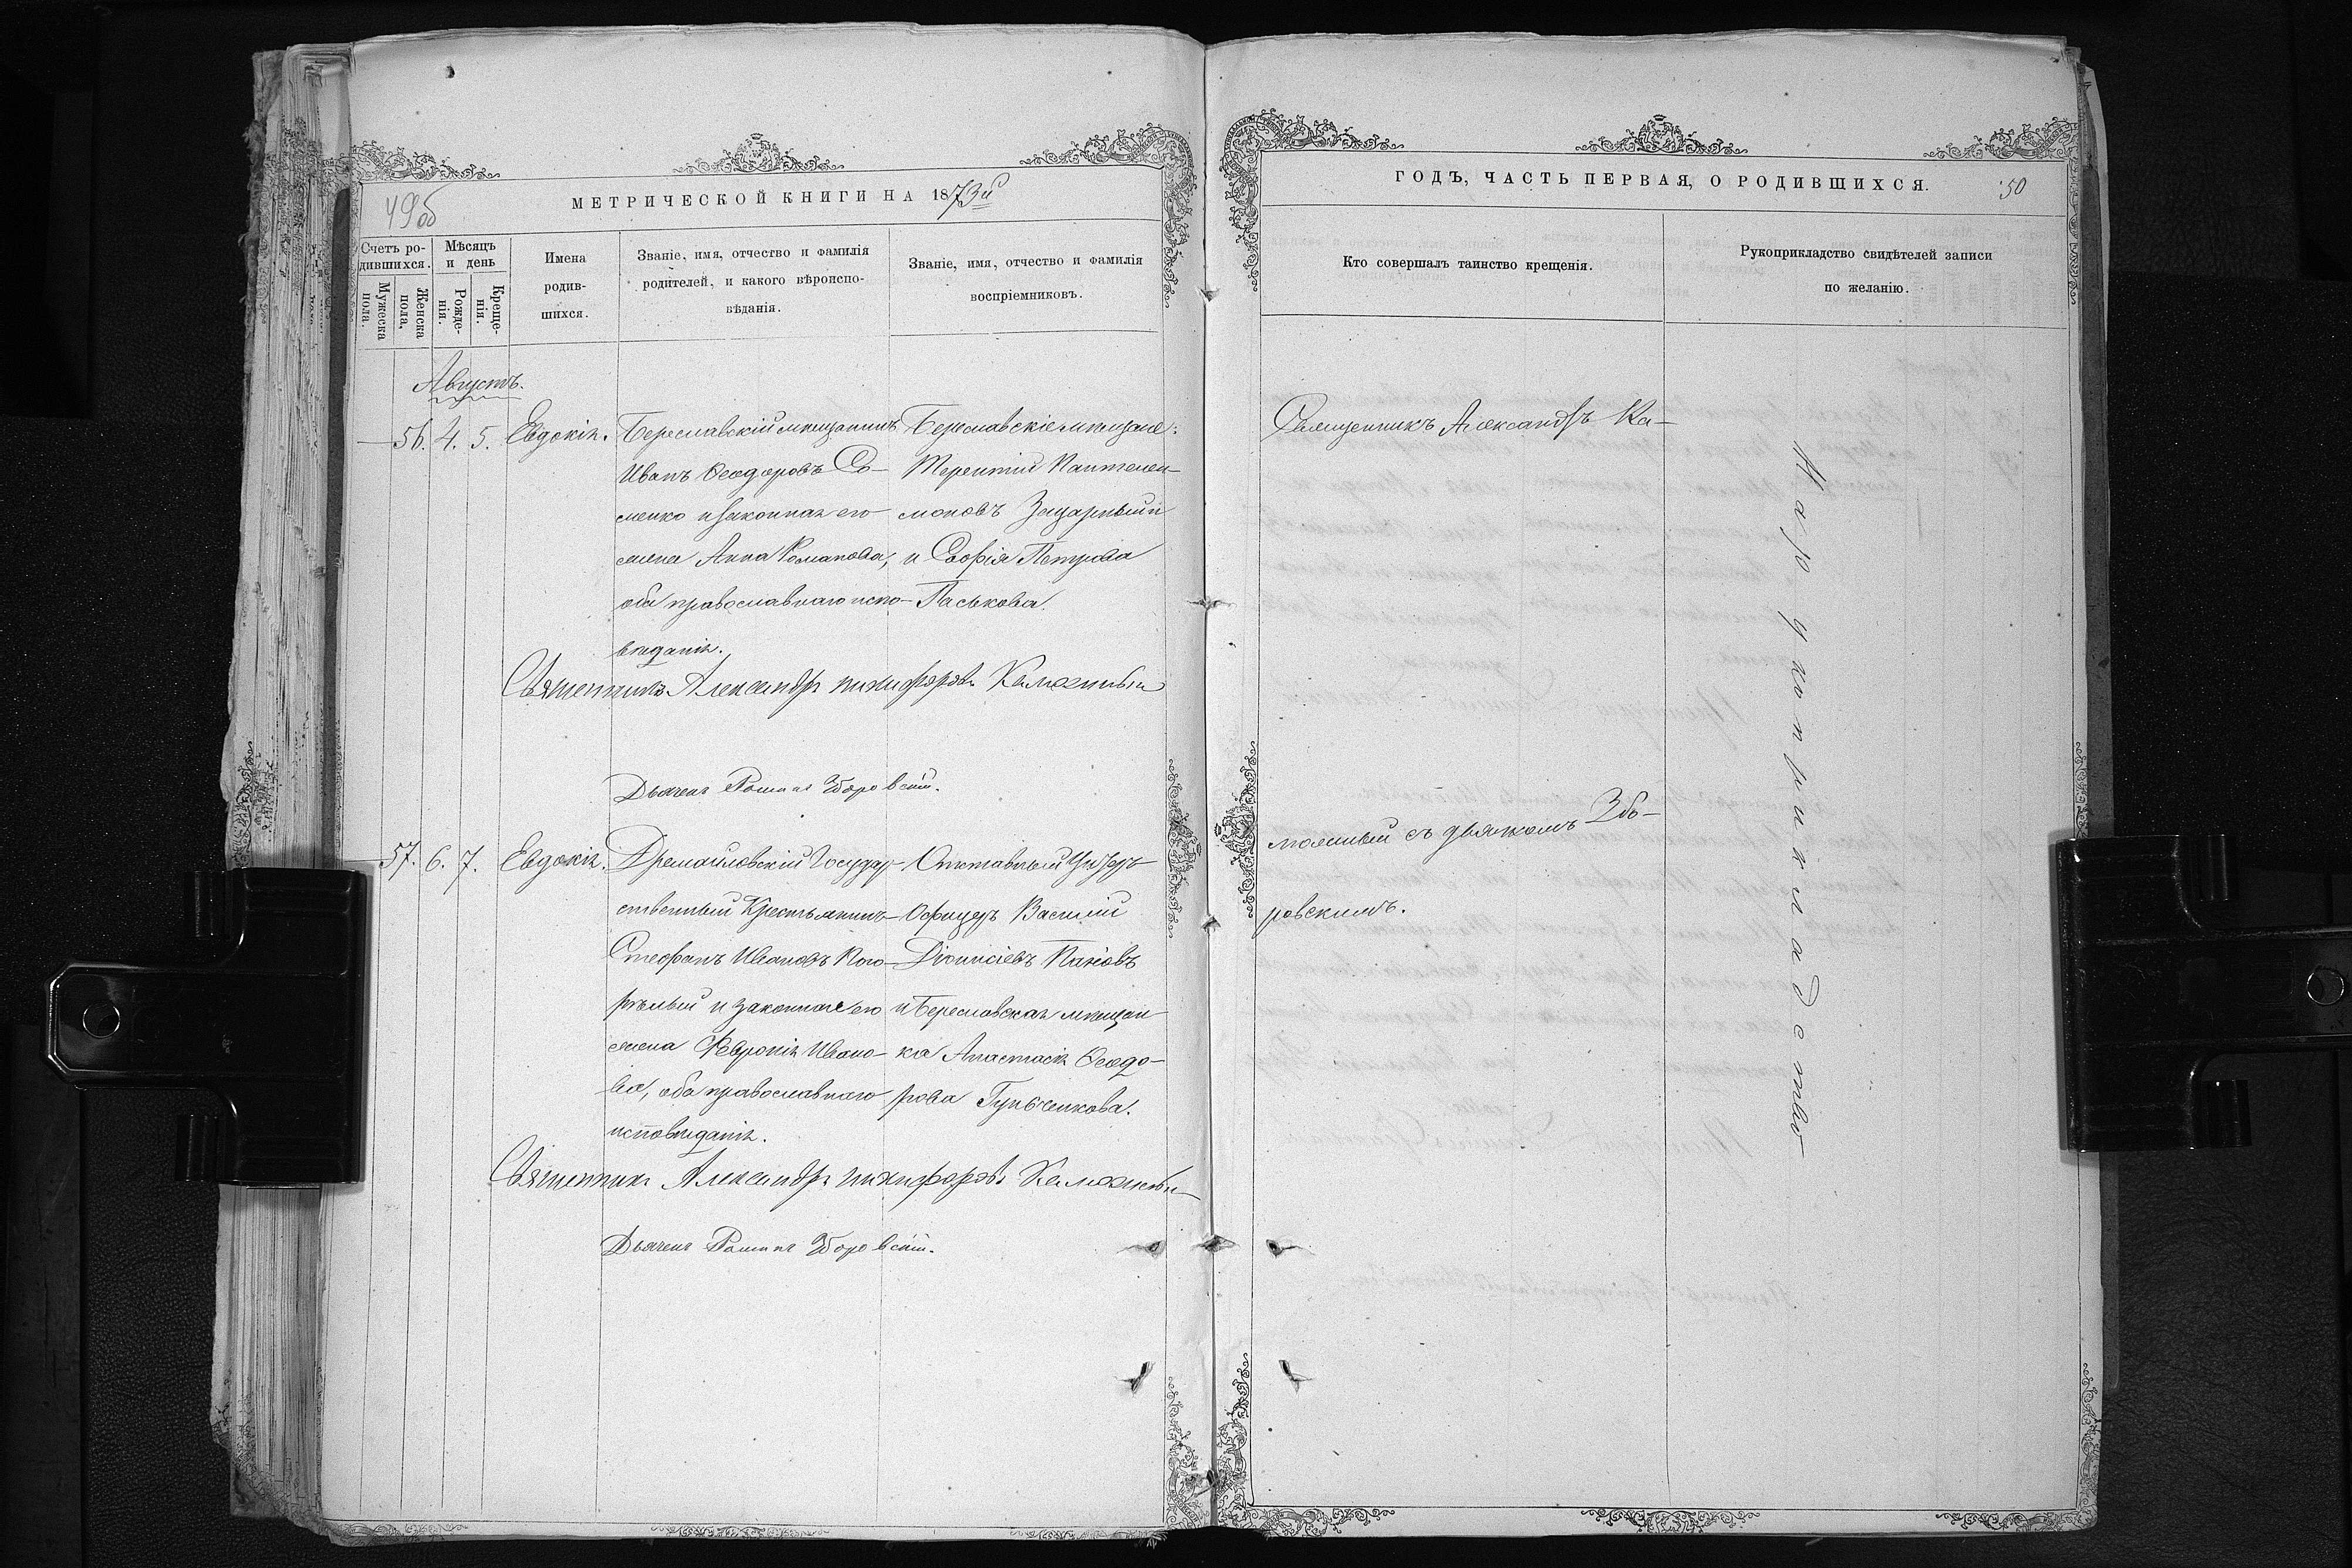 49об
МЕТРИЧЕСКОЙ КНИГИ НА 1873й
Счетъ ро-
дившихся.
Мужеска
пола.
Женска
пола.
Мѣсяцъ
и день
Рожде-
нія.
Креще-
нія.
Имена
родив-
шихся.
Званіе, имя, отчество и фамилія
родителей, и какого вѣроиспо-
вѣданія.
Званіе, имя, отчество и фамилія
воспріемниковъ.
Августъ.
56. 4. 5. Евдокія.
Береславскій мѣщанинъ
Иванъ Ѳеодоровъ Со-
менко и законная его
жена Анна Романова,
оба православнаго испо-
вѣданія.
Береславскіе мѣщане:
Терентій Пантелеи-
моновъ Захарный
и Софія Петрова
Паськова.
Священникъ Александръ Никифоровъ Каложный
Дьячекъ Романъ Зборовскій.
57. 6. 7. Евдокія.
Дремайловскій Государ-
ственный Крестьянинъ
Стефанъ Ивановъ Пого-
рѣлый и законная его
жена Феvронія Ивано-
ва, оба православнаго
исповѣданія.
Отставный Унтеръ-
Офицеръ Василій
Діонисіевъ Паховъ
и Береславская мѣщан-
ка Анастасія Ѳеодо-
рова Гунченкова.
Священникъ Александръ Никифоровъ Каложный
Дьячекъ Романъ Зборовскій.
ГОДЪ, ЧАСТЬ ПЕРВАЯ, О РОДИВШИХСЯ.
50
Кто совершалъ таинство крещенія.
Рукоприкладство свидѣтелей записи
по желанію.
Священникъ Александръ Ка-
ложный съ дьячкомъ Збо-
ровскимъ.